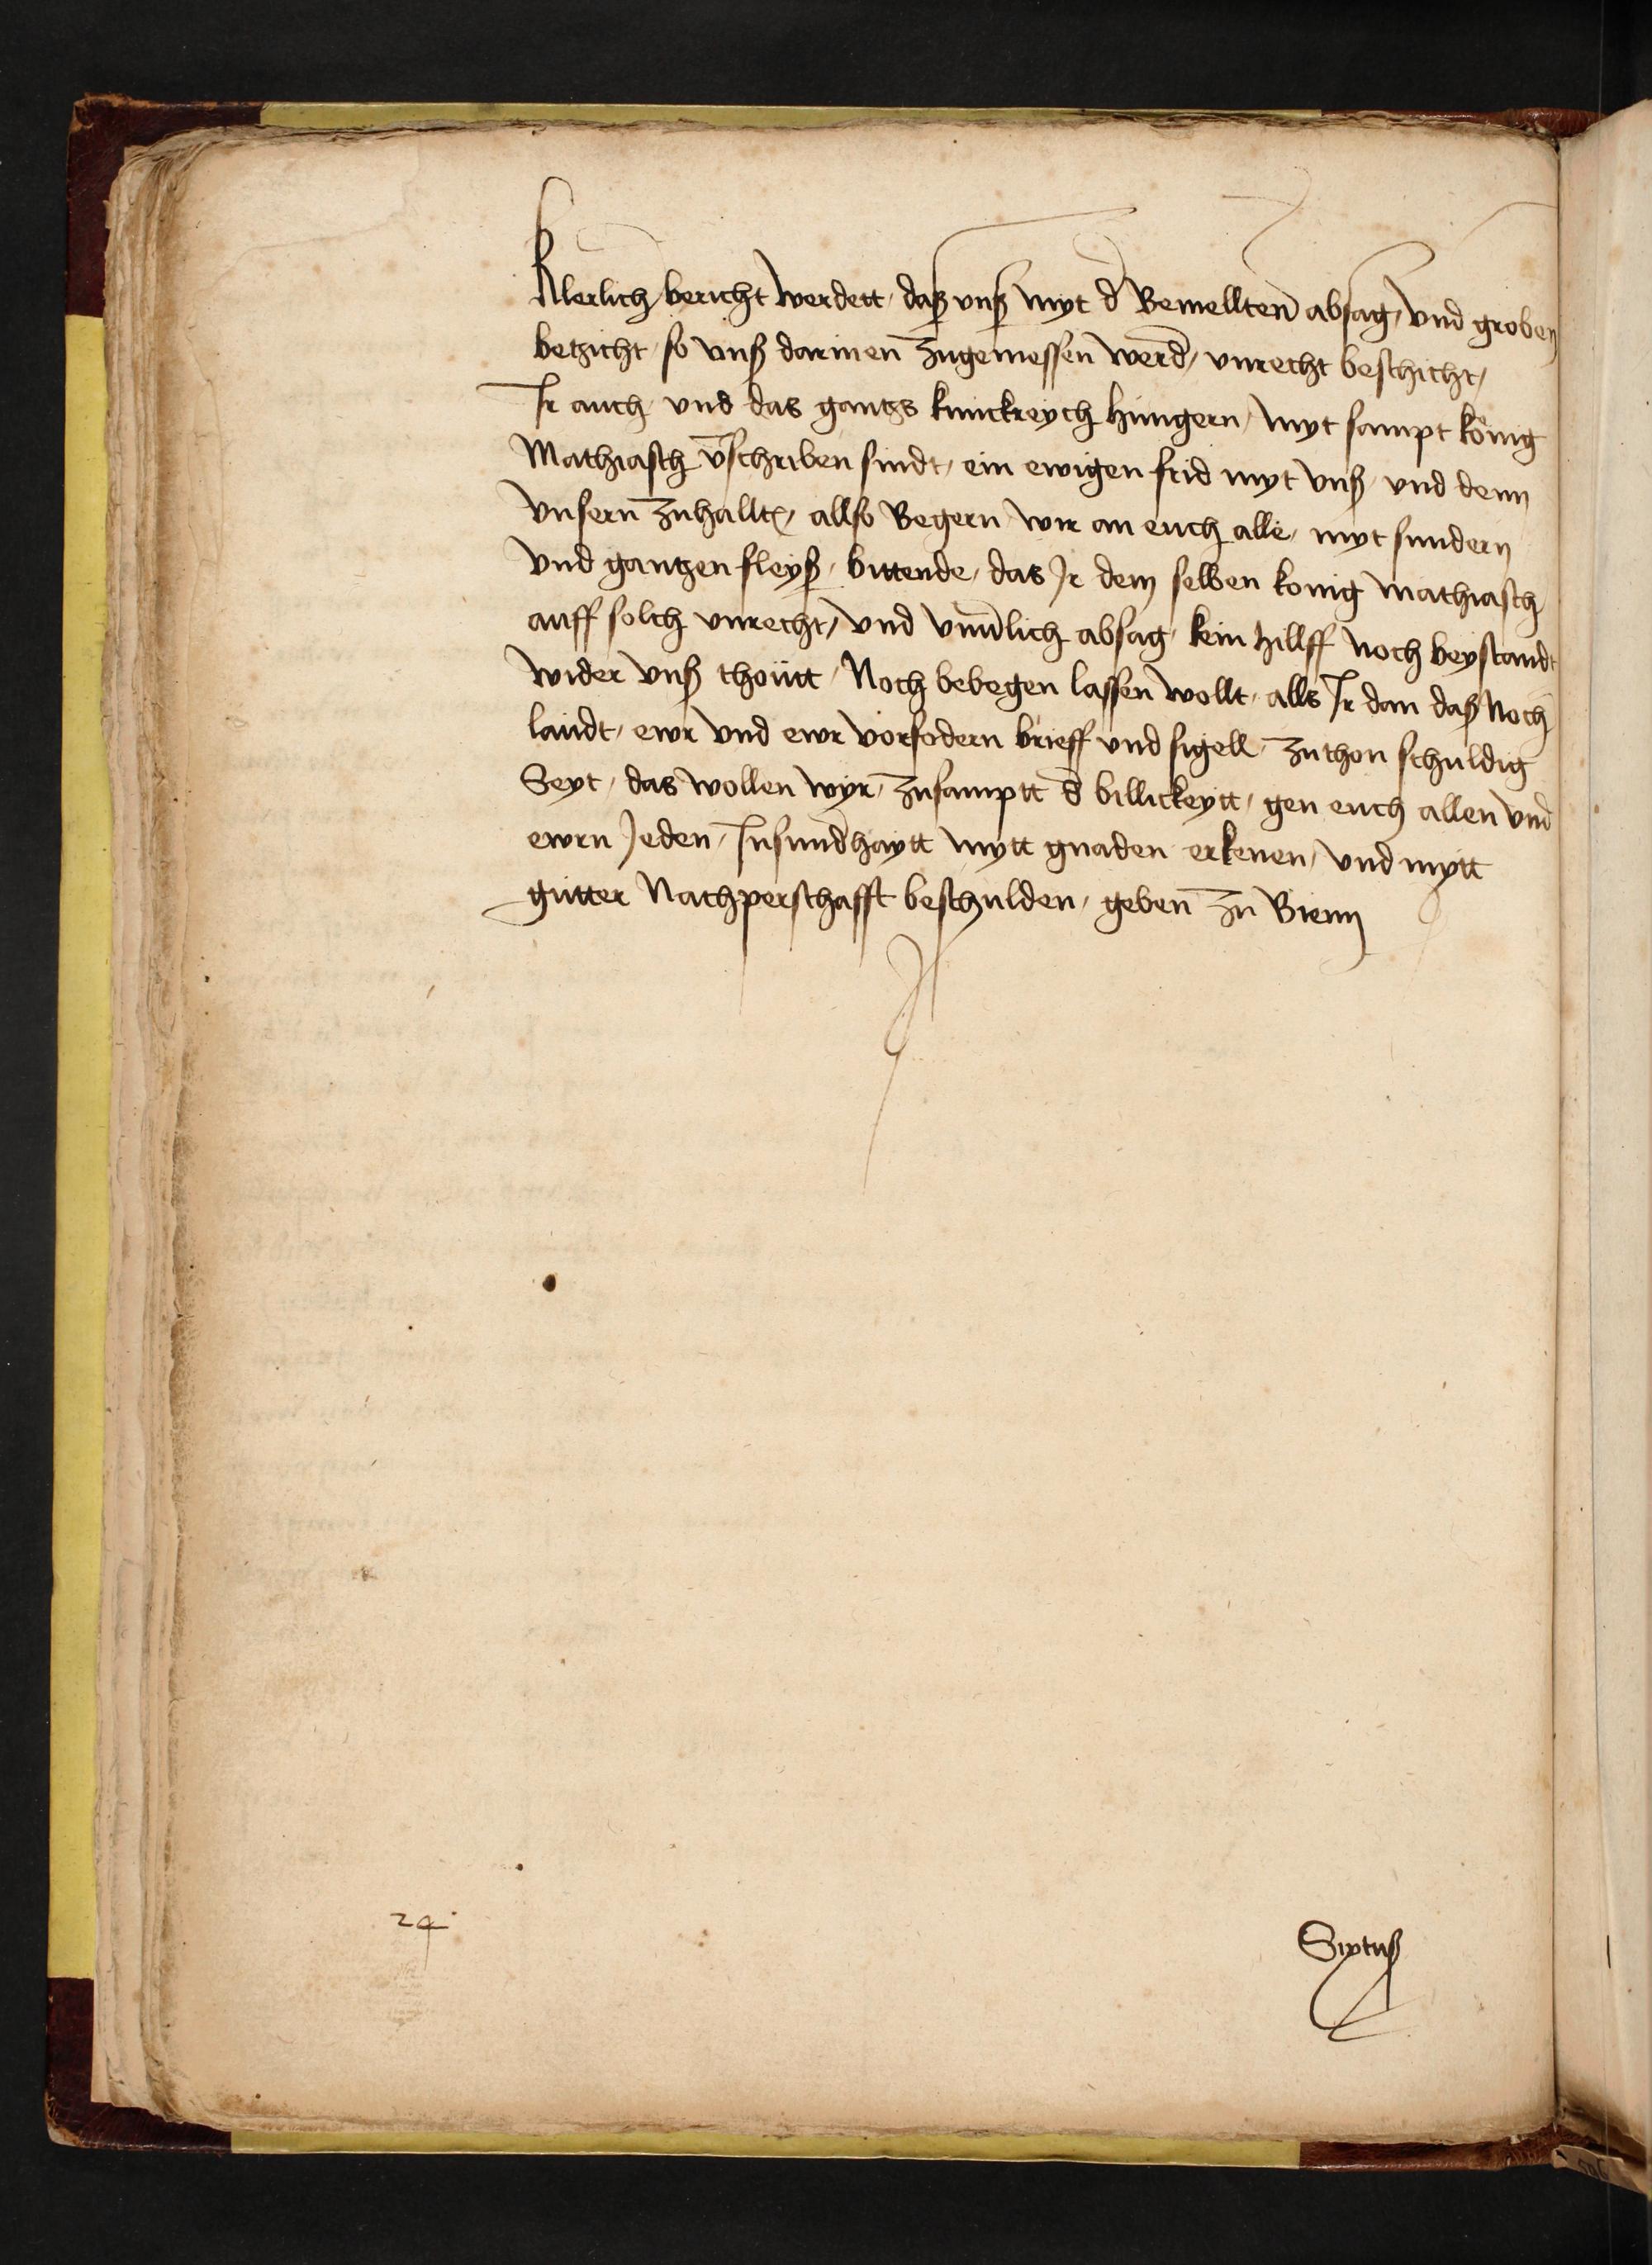 klerlich bericht werdett, daß vnß myt d̄ Bemelltenn̄ absag, vnd groben
betzicht, so vnß darinnen̄ zugemessen werd̄, vnrecht beschicht,
Ir auch vnd das gantzs kunickreych hungern, myt sampt kőnig
Mathiasch v̄schriben sindt, ein ewigen frid myt vnß, vnd denn
vnsern̄ zuhallt, allso Begern wir an euch alle, myt sundern
vnd gantzen fleyß, bittende, das Jr dem selben konig mathiasch
auff solch vnrecht, vnd absag, kein hillff noch beystandt
wider vnß thőutt, Noch bebegen lassen wollt, alls Ir dan daß Noch
laudt, ewr vnd ewr vorfodern brieff vnd sigell, zuthon schuldig
Seyt, das wollen wyr, zusamptt d̄ billickeytt, gen euch allen vnd
ewrn Jeden, Insund̄haytt mytt gnaden erkenen, vnd mytt
gutter Nachperschafft beschulden, geben̄ zu Wienn
24
Sixtuß